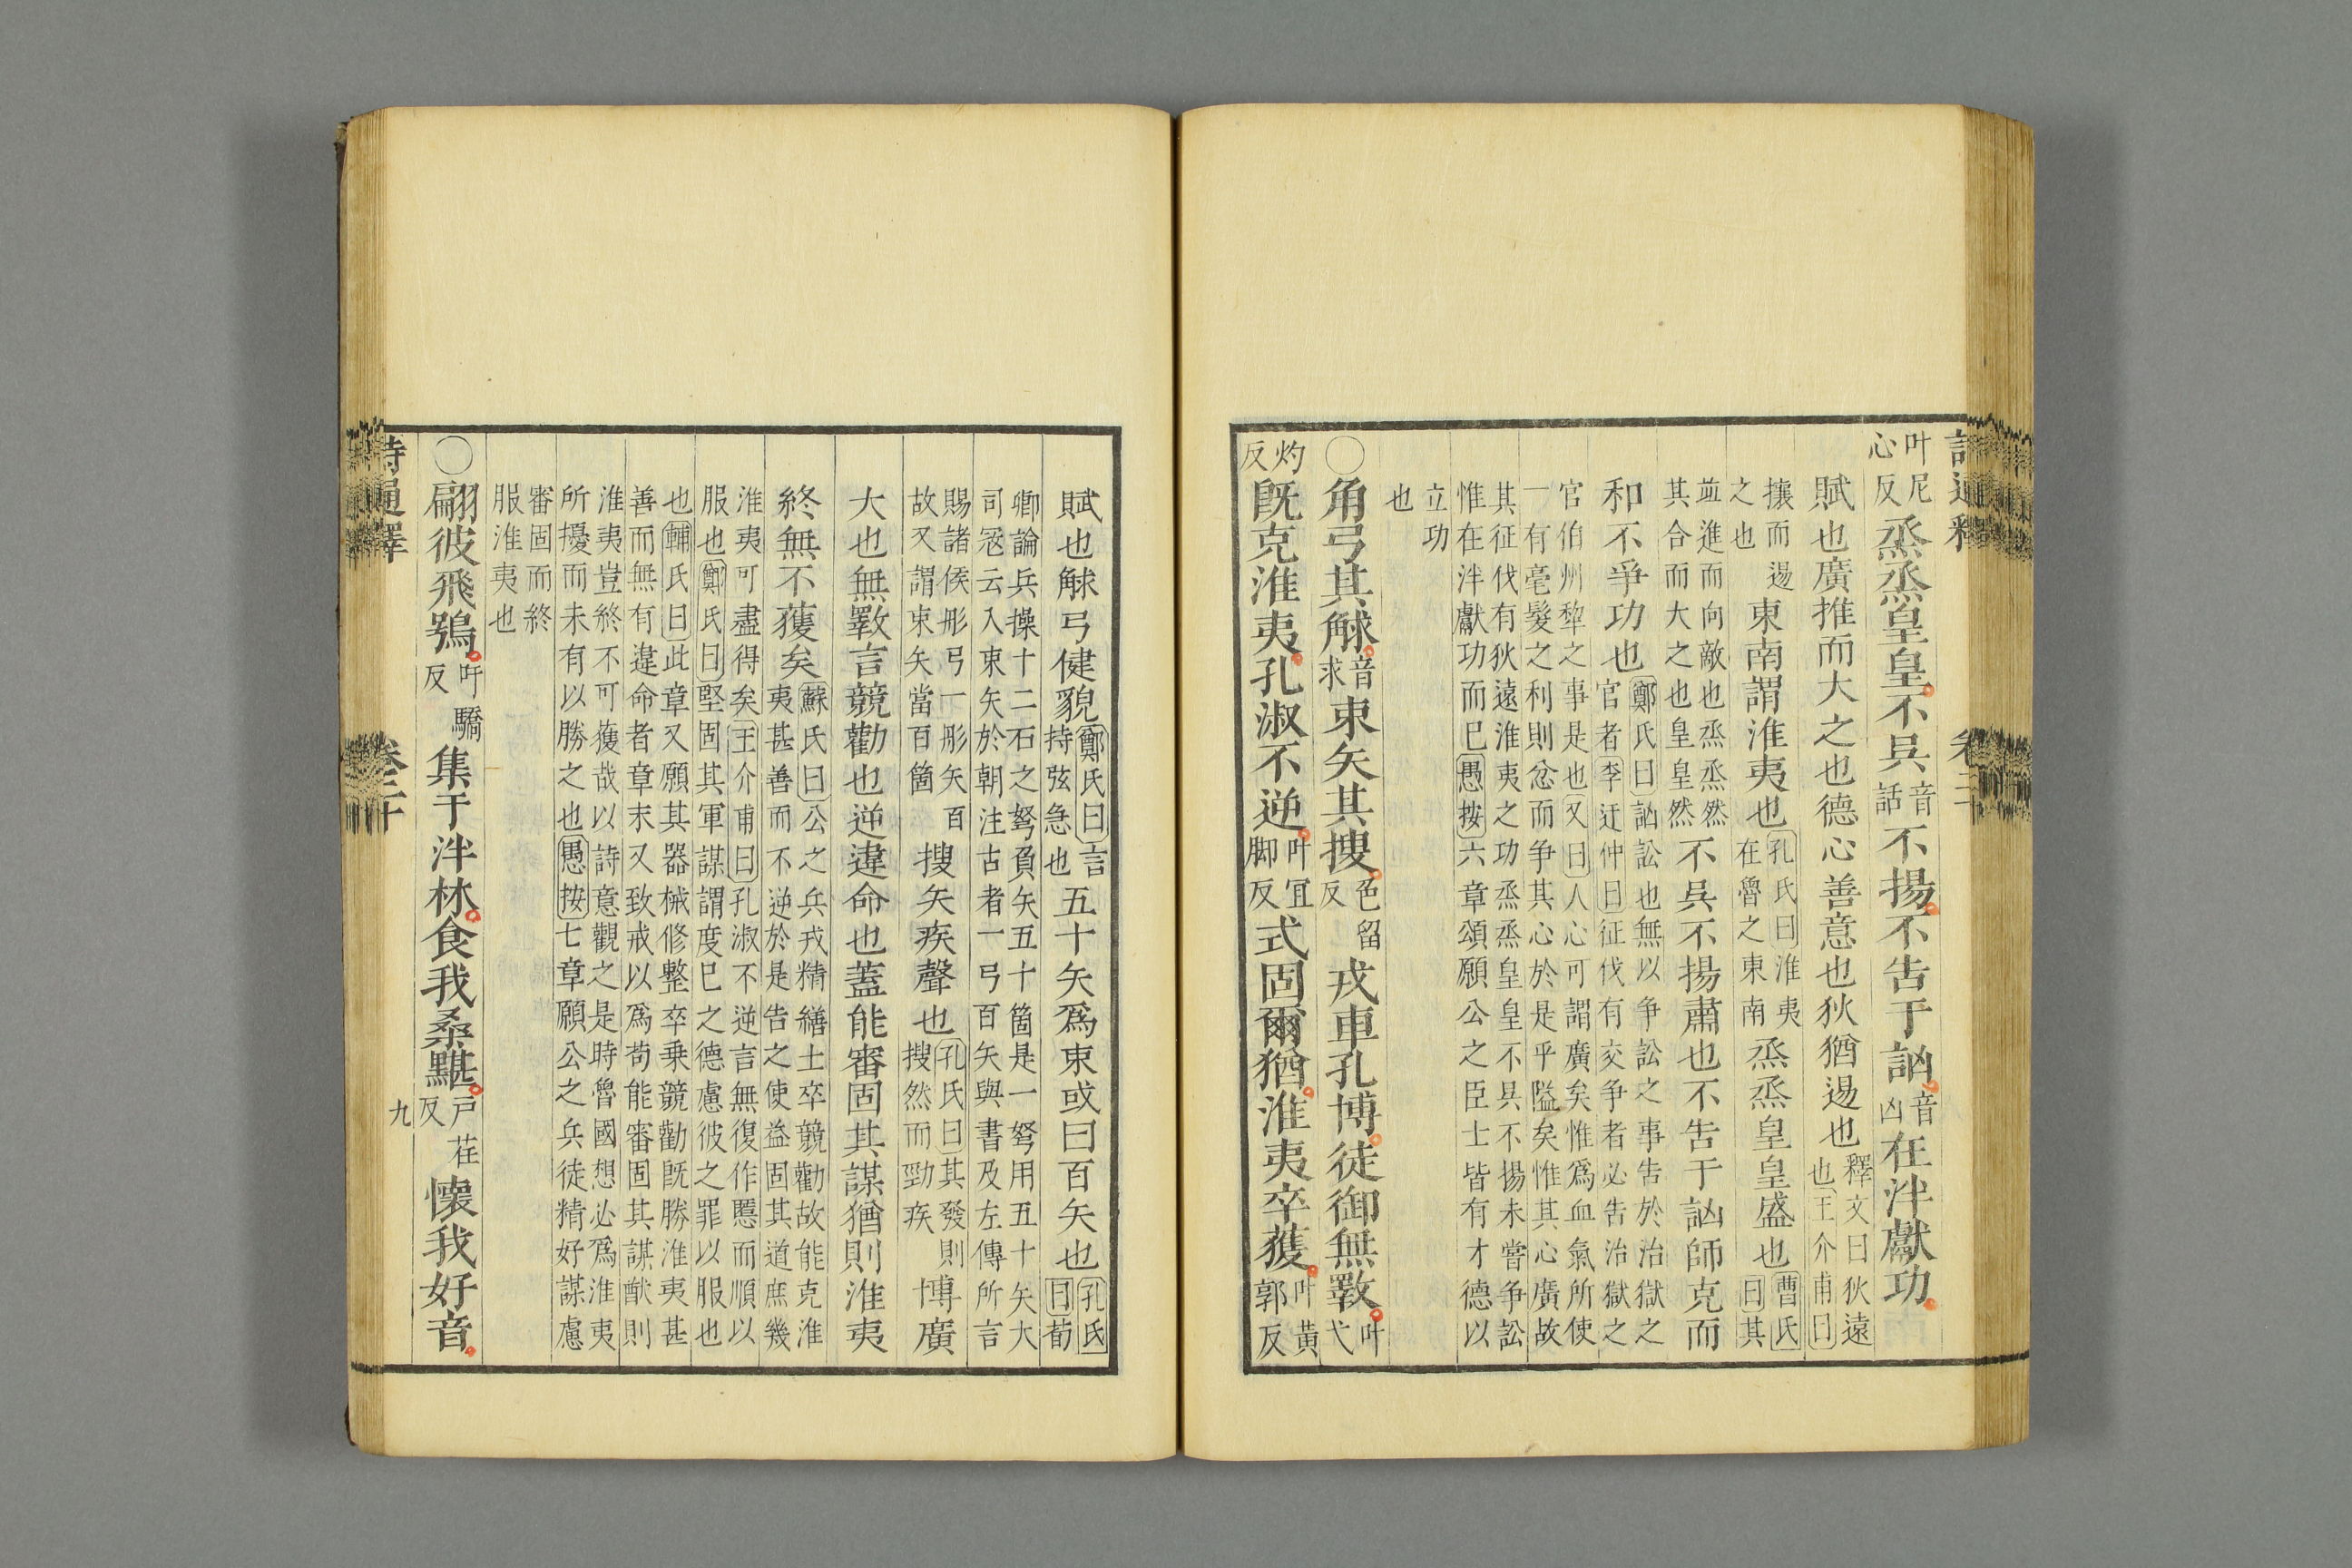 詩通釋 卷二十
叶尼心反烝烝皇皇不吳音話不揚不告于訩音凶在泮獻功
賦也廣推而大之也德心善意也狄猶逷也釋文曰狄遠也王介甫曰
攘而逷之也東南謂淮夷也孔氏曰淮夷在魯之東南烝烝皇皇盛也曹氏曰其
竝進而向敵也烝烝然其合而大之也皇皇然不吳不揚肅也不告于訩師克而
和不爭功也鄭氏曰訩訟也無以争訟之事告於治獄之官者李迂仲曰征伐有交争者必告治獄之
官伯州犂之事是也又曰人心可謂廣矣惟爲血氣所使一有毫髮之利則忿而争其心於是乎隘矣惟其心廣故
其征伐有狄遠淮夷之功烝烝皇皇不吳不揚未嘗争訟惟在泮獻功而已愚按六章頌願公之臣士皆有才德以
立功也
○角弓其觩音求束矢其搜色留反戎車孔博徒御無斁叶弋
灼反旣克淮夷孔淑不逆叶宜脚反式固爾猶淮夷卒獲叶黃郭反
賦也觩弓健貌鄭氏曰言持弦急也五十矢爲束或曰百矢也孔氏曰荀
卿論兵操十二石之弩負矢五十箇是一弩用五十矢大司寇云入束矢於朝注古者一弓百矢與書及左傳所言
賜諸侯彤弓一彤矢百故又謂束矢當百箇搜矢疾聲也孔氏曰其發則搜然而勁疾博廣
大也無斁言競勸也逆違命也蓋能審固其謀猶則淮夷
終無不獲矣蘇氏曰公之兵戎精繕士卒競勸故能克淮夷甚善而不逆於是告之使益固其道庶幾
淮夷可盡得矣王介甫曰孔淑不逆言無復作慝而順以服也鄭氏曰堅固其軍謀謂度已之德慮彼之罪以服也
也輔氏曰此章又願其器械修整卒乘競勸旣勝淮夷甚善而無有違命者章末又致戒以爲苟能審固其謀猷則
淮夷豈終不可獲哉以詩意觀之是時魯國想必爲淮夷所擾而未有以勝之也愚按七章願公之兵徒精好謀慮
審固而終服淮夷也
○翩彼飛鴞吁驕反集于泮林食我桑黮戸荏反懷我好音
詩通釋 卷二十 九